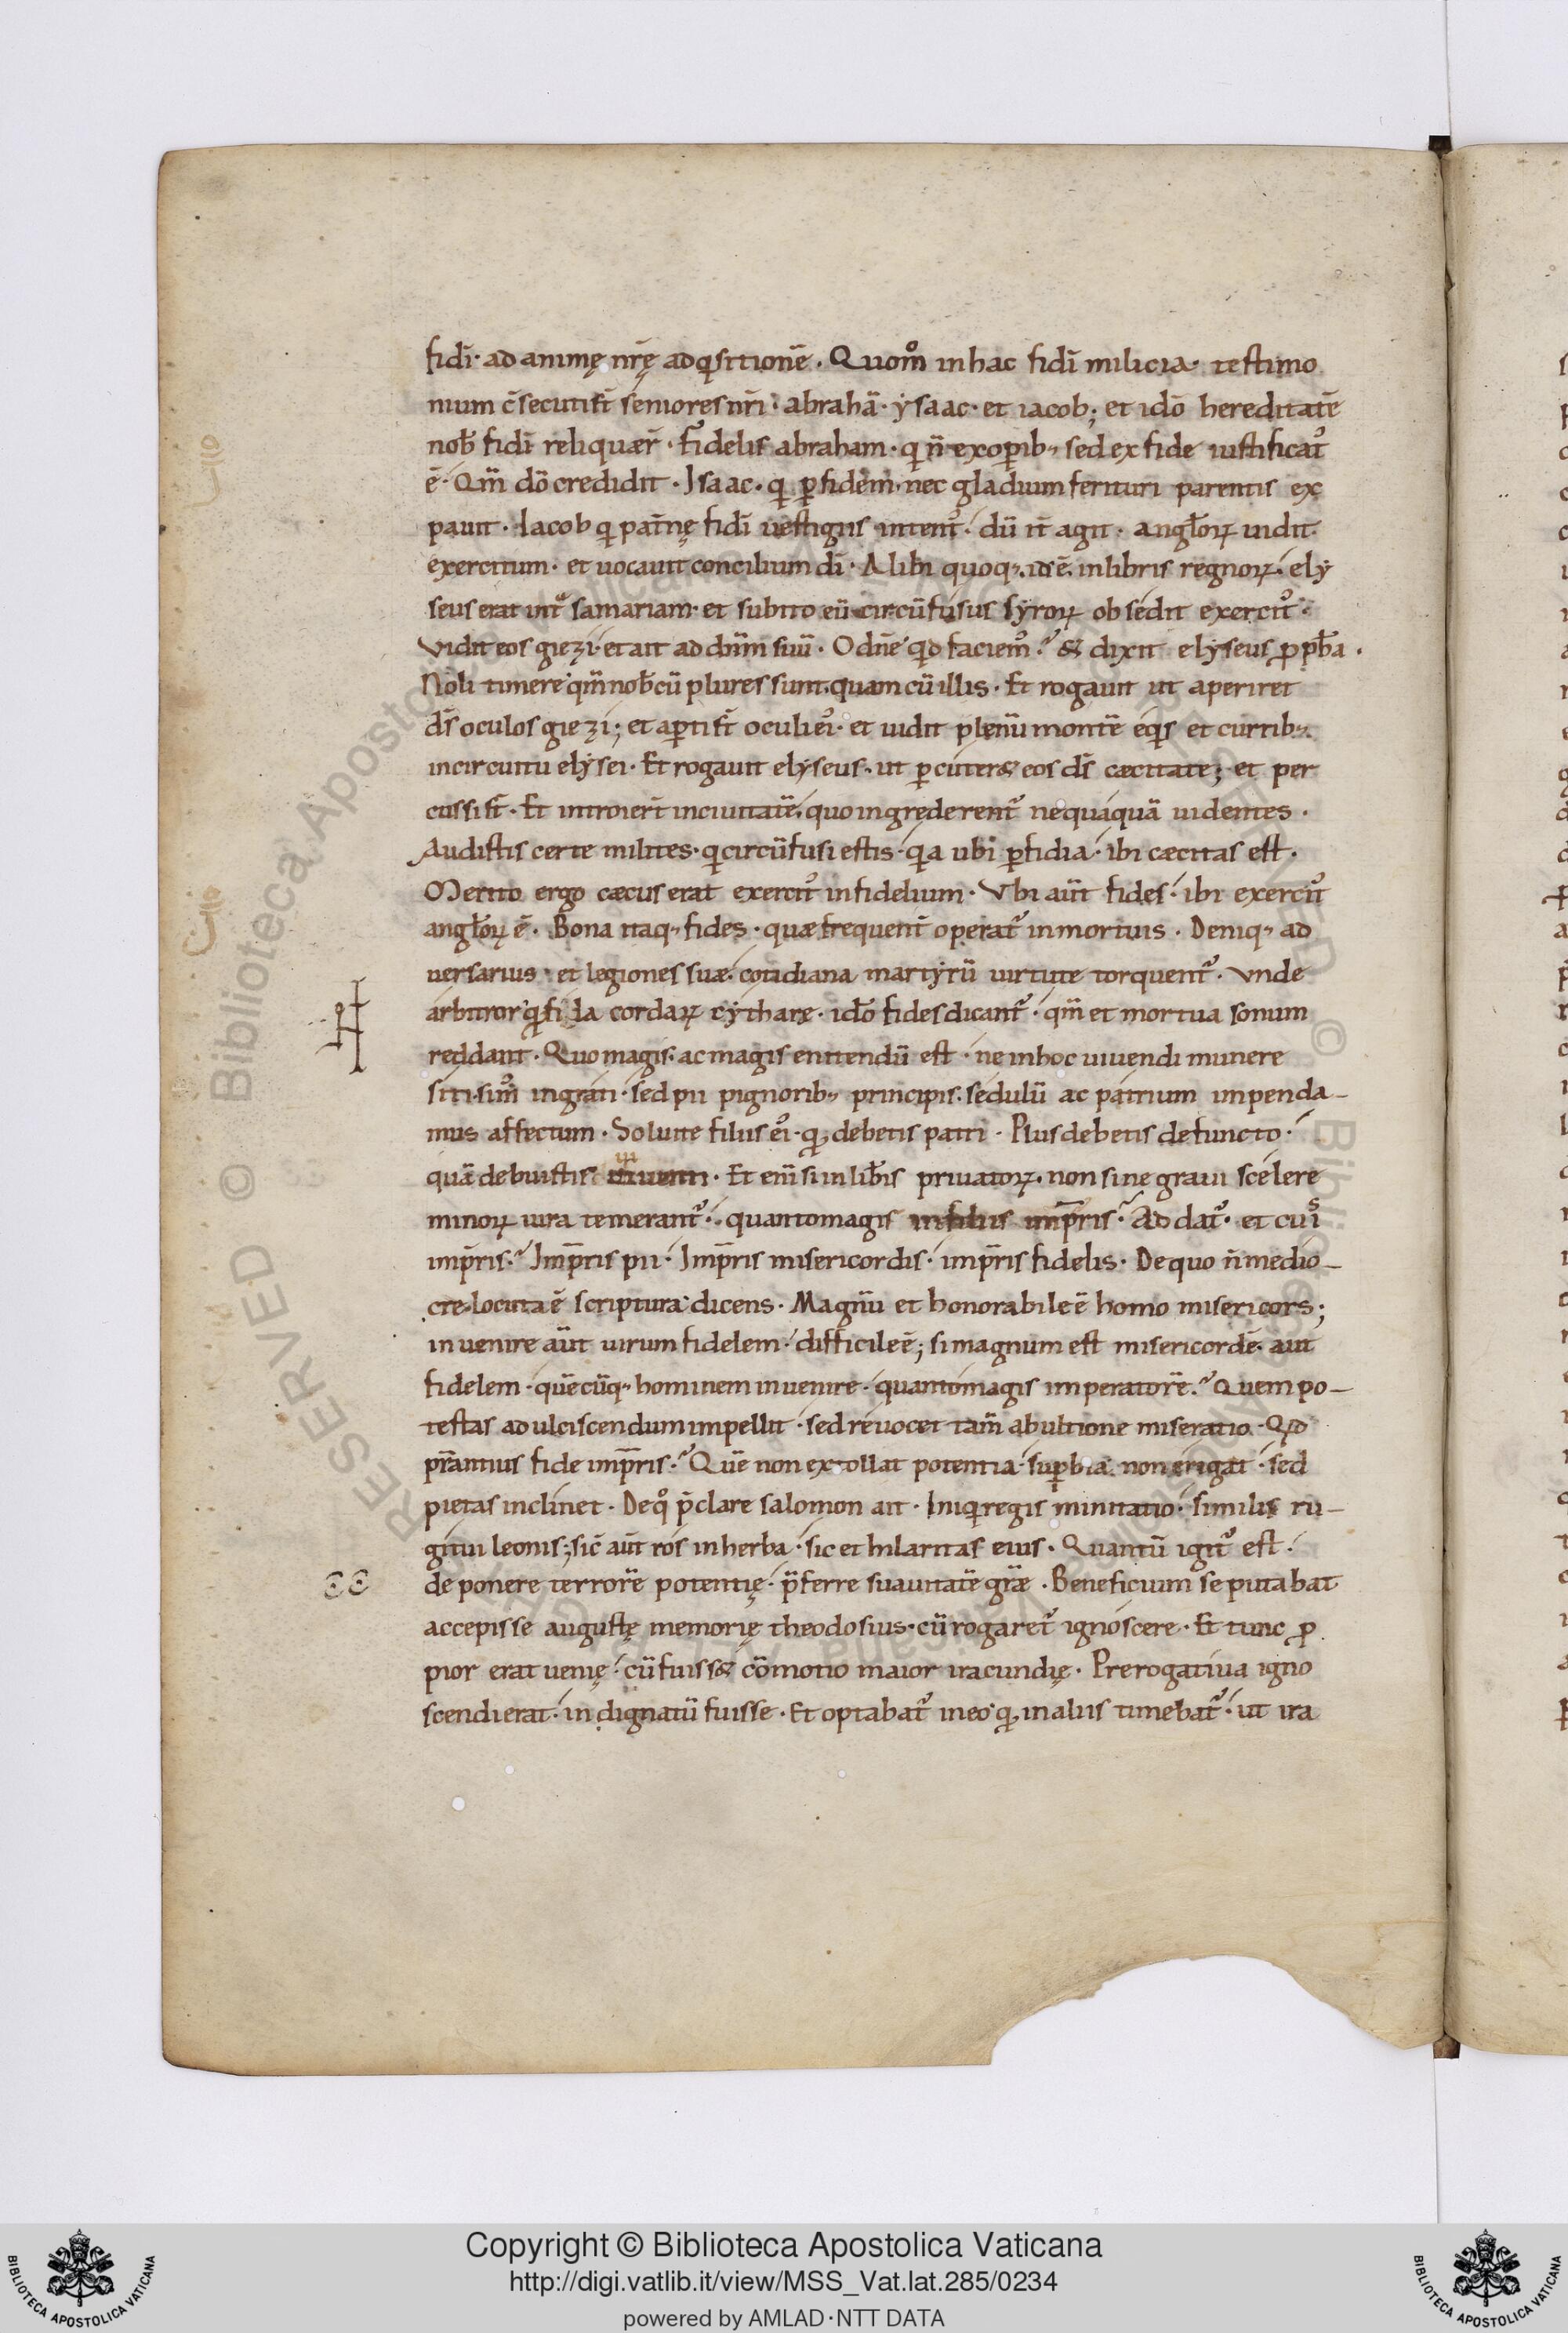 fidī· ad animę nr̄ę adq̇sitionē. Quom̊ in hac fidī milicia· testimo
nium c̄secutis̄t seniores nr̄i· abrahā· ysaac· et iacob; et idō hereditatē
nob̄ fidī reliquær̄· Fidelis abraham· q n̄ ex op̲ib;, sed ex fide iustificat᷒
ē· Qm̄ dō credidit· Isaac· q p̲ fidem· nec gladium ferituri parentis ex
pauit· Iacob q pat̄nę fidī uestigiis intent᷒· dū it̄ agit· angl̄oꝝ uidit·
exercitum· et uocauit concilium dī· Alibi quoq;, id ē· in libris regnoꝝ· ely
seus erat int᷒ samariam· et subito eū circūfusus syroꝝ obsedit exercit᷒·
Vidit eos giezi· et ait ad dn̄m suū· O dn̄e qd faciem᷒? & dixit elyseus ꝓph̄a·
Noli timere qm̄ nob̄cū plures sunt· quam cū illis· Et rogauit ut aperiret
dī oculos giezi; et ap̲tis̄t oculi ei᷒· et uidit plenū montē eq̇s et currib;,
in circuitu elysei· Et rogauit elyseus· ut p̲cuter& eos ds̄ cæcitate; et per
cussi s̄t· Et introier̄t in ciuitatē, quo ingrederent᷒ nequaquā uidentes·
Audistis certe milites· q circūfusi estis· qa ubi p̲fidia· ibi cæcitas est·
Merito ergo cæcus erat exercit᷒ infidelium· Vbi aūt fides· ibi exercit᷒
angl̄oꝝ ē· Bona itaq;, fides· quæ frequent̄ operat᷒ in mortuis· Deniq;, ad
uersarius· et legiones suæ· cotidiana martyrū uirtute torquent᷒· Vnde
arbitror q fi la cordaꝝ cytharę· idō fides dicant᷒· qm̄ et mortua sonum
reddant· Quo magis ac magis enitendū est· ne in hoc uiuendi munere
siti sim᷒ ingrati· sed pii pignorib;, principis· sedulū ac patrium impenda-
mus affectum· Soluite filiis ei᷒· q debetis patri· Plus debetis defuncto·
quā debuistis uiuenti· Et eni᷒ si in lib̄is priuatoꝝ· non sine graui scelere
minoꝝ iura temerant᷒· quanto magis in filiis imp̄ris? Addat᷒· et cui᷒
imp̄ris? Imp̄ris pii· Imp̄ris misericordis· imp̄ris fidelis· De quo n̄ medio-
cre locuta ē scriptura dicens· Magnū et honorabile ē homo misericors;
inuenire aūt uirum fidelem· difficile ē; si magnum est misericordē· aut
fidelem· quēcūq;, hominem inuenire· quanto magis imperatorē? Quem po-
testas ad ulciscendum impellit· sed reuocet tam̄ ab ultione miseratio· Qd
pr̄antius fide imp̄ris? Quē non extollat potentia· sup̲bia non erigat· sed
pietas inclinet· De q̊ p̄clare salomon ait· Iniq regis minitatio· similis ru-
gitui leonis; sic̄ aūt ros in herba· sic et hilaritas eius· Quantū igit᷒ est·
deponere terrorē potentię· p̄ferre suauitatē gr̄æ· Beneficium se putabat
accepisse augustę memorię theodosius· cū rogaret᷒ ignoscere· Et tunc ꝓ
pior erat uenię· cū fuiss& cōmotio maior iracundię· Prerogatiua igno
scendi erat· indignatū fuisse· Et optabat᷒ in eo q in aliis timebat᷒· ut ira
Copyright © Biblioteca Apostolica Vaticana
http://digi.vatlib.it/view/MSS_Vat.lat.285/0234
powered by AMLAD·NTT DATA
BIBLIOTECA APOSTOLICA VATICANA
BIBLIOTECA APOSTOLICA VATICANA